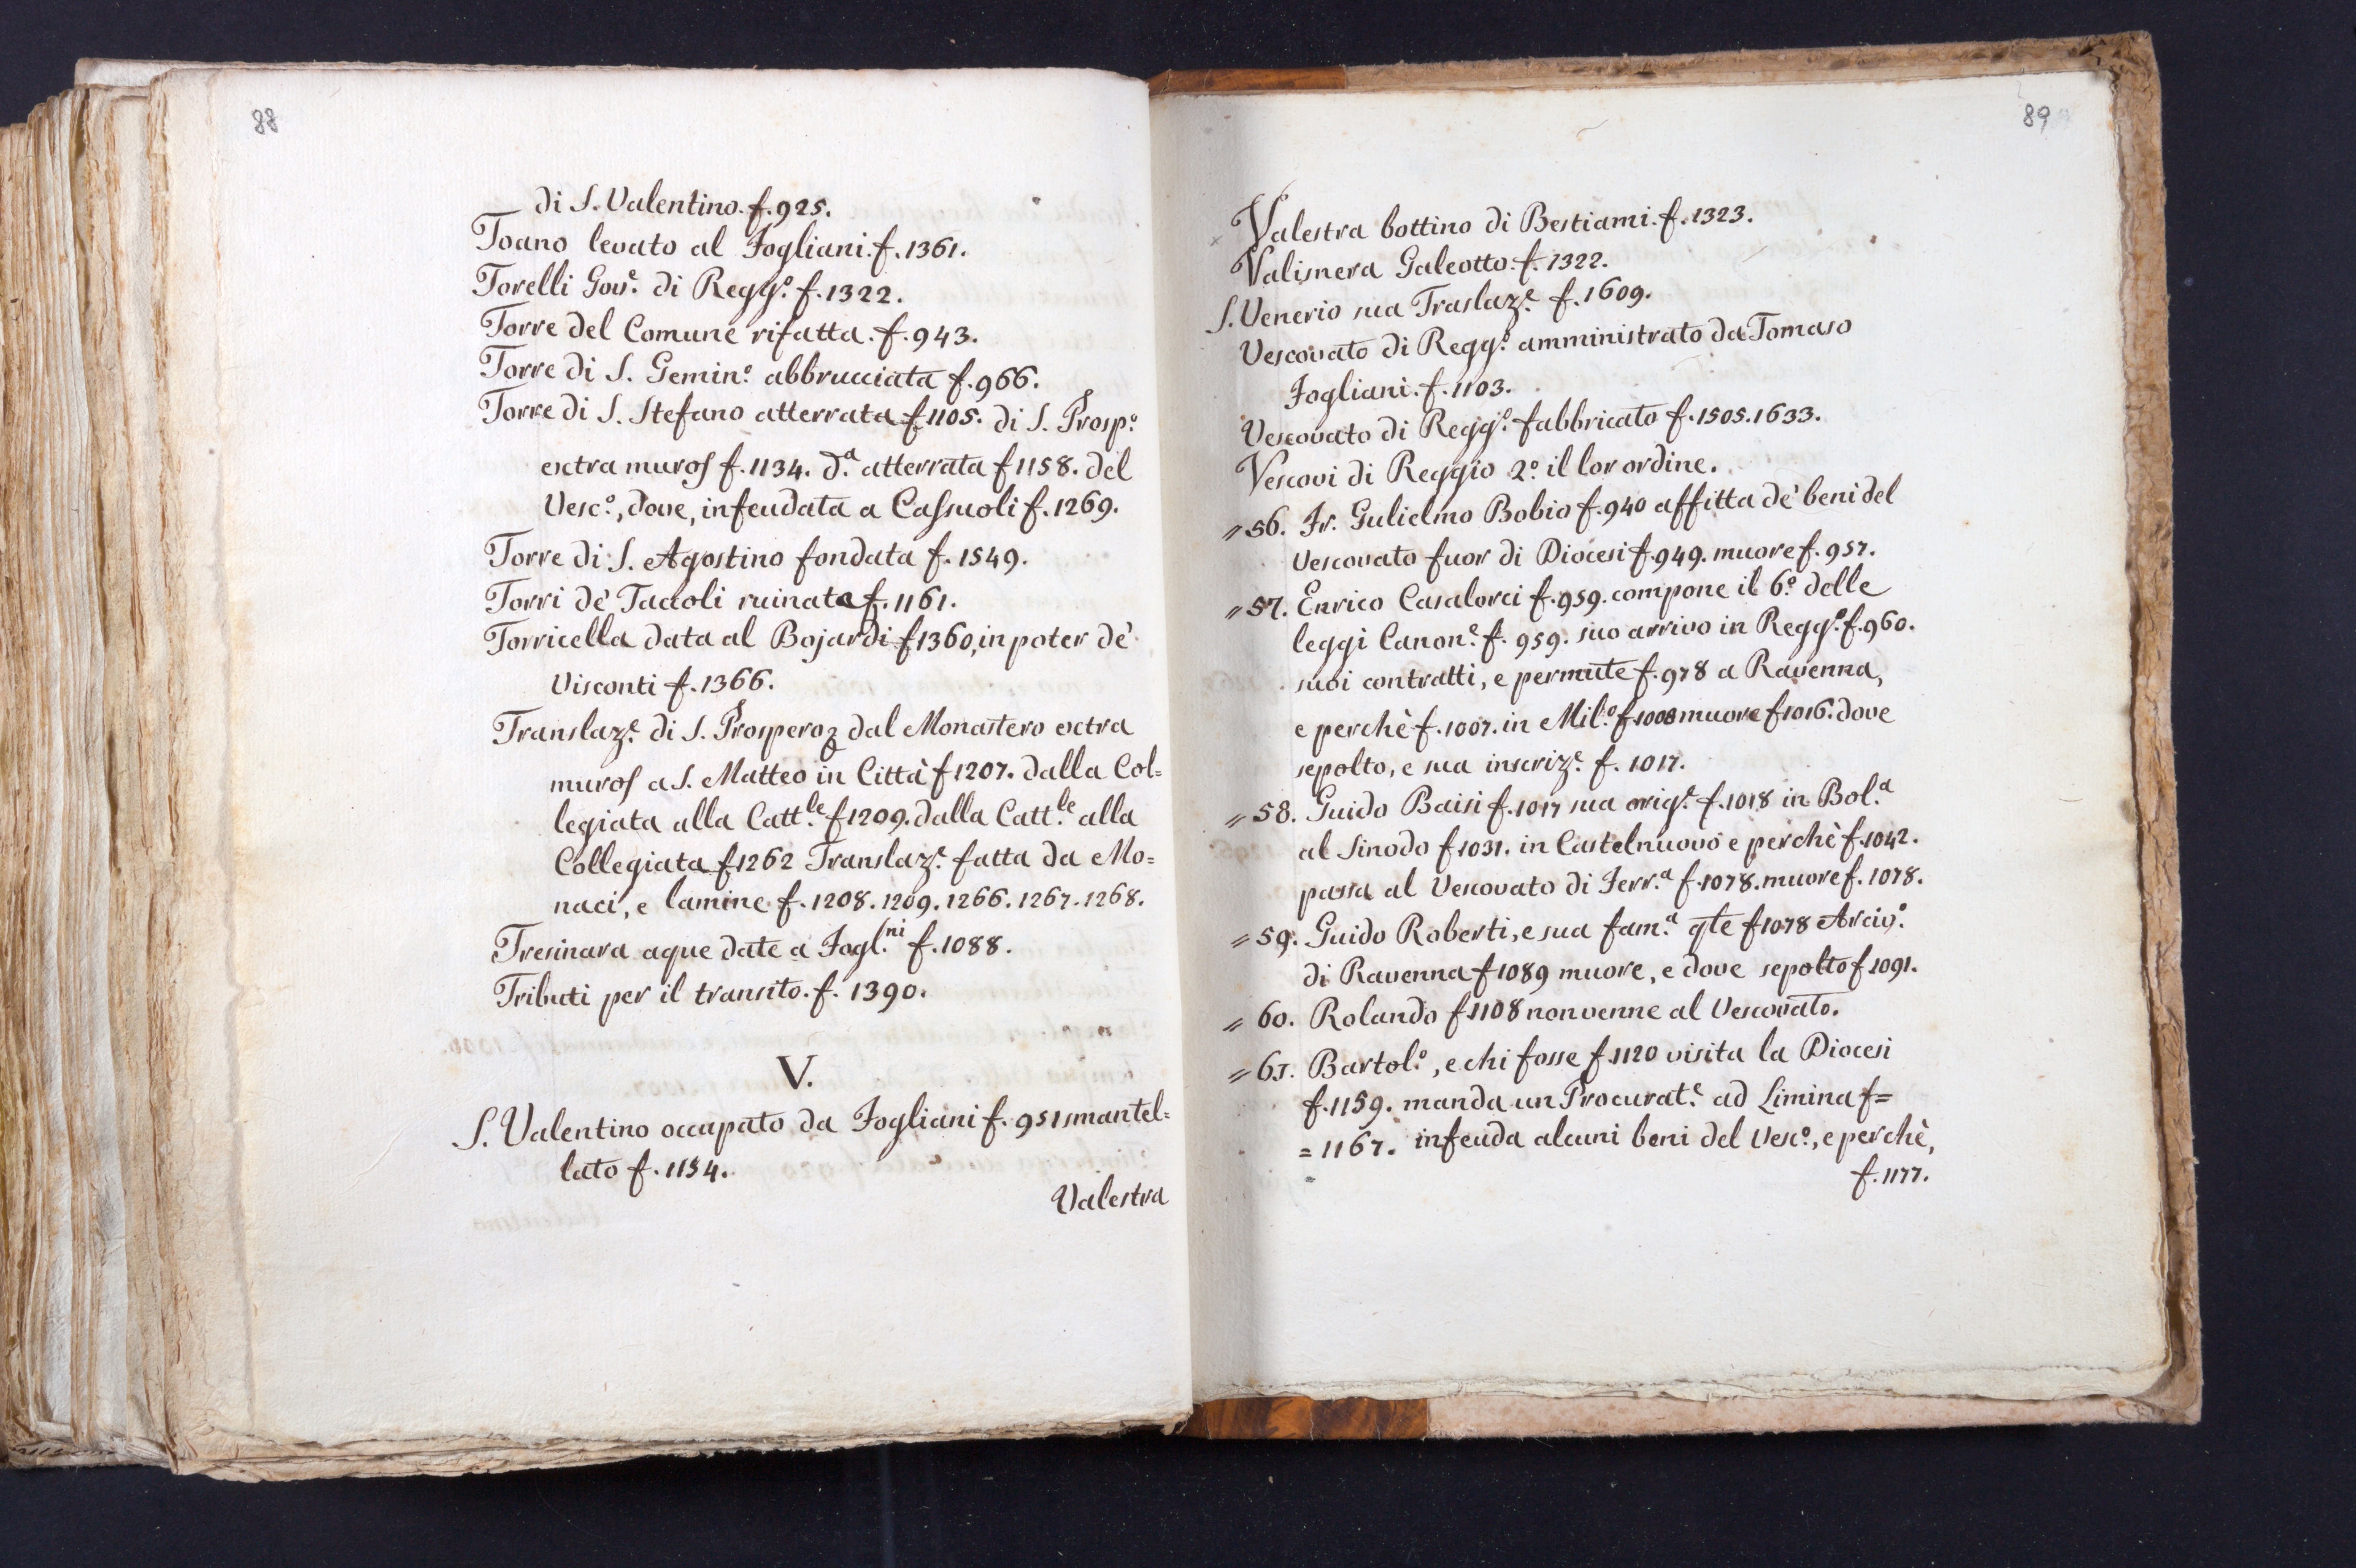 88
di S. Valentino. f. 925.
Toano levato al Fogliani. f. 1361.
Torelli Gov.e di Regg.o f. 1322.
Torre del Comune rifatta. f. 943.
Torre di S. Gemin.o abbrucciata f. 966.
Torre di S. Stefano atterrata f 1105. di S. Prosp.o
extra muros f. 1134. d.a atterrata f 1158. del
Vesc.o, dove, infeudata a Cassuoli f. 1269.
Torre di S. Agostino fondata f. 1549.
Torri de' Tacoli ruinate f. 1161.
Torricella data al Bojardi f 1360, in poter de'
Visconti f. 1366.
Translaz.e di S. Prospero dal Monastero extra
muros a S. Matteo in Città f 1207. dalla Col=
legiata alla Catt.le f 1209. dalla Catt.le alla
Collegiata f 1262 Translaz.e fatta da Mo=
naci, e lamine f. 1208. 1209. 1266. 1267. 1268.
Tresinara aque date a Fogl.ni f. 1088.
Tributi per il transito. f. 1390.
V.
S. Valentino occupato da Fogliani f. 951 smantel=
lato f. 1154.
Valestra
89
Valestra bottino di Bestiami. f. 1323.
Valisnera Galeotto. f. 1322.
S. Venerio sua Traslaz.e f. 1609.
Vescovato di Regg.o amministrato da Tomaso
Fogliani. f. 1103.
Vescovato di Regg.o fabbricato f. 1505. 1633.
Vescovi di Reggio 2.o il lor ordine.
= 56. Fr. Gulielmo Bobio f. 940 affitta de' beni del
Vescovato fuor di Diocesi f. 949. muore f. 957.
= 57. Enrico Casalorci f. 959. compone il 6.o delle
leggi Canon.e f. 959. suo arrivo in Regg.o f. 960.
suoi contratti, e permute f. 978 a Ravenna,
e perchè f. 1007. in Mil.o f 1008 muore f 1016. dove
sepolto, e sua inscriz.e f. 1017.
= 58. Guido Baisi f. 1017 sua orig.e f. 1018 in Bol.a
al Sinodo f 1031. in Castelnuovo e perchè f. 1042.
passa al Vescovato di Ferr.a f. 1078. muore f. 1078.
= 59. Guido Roberti, e sua fam.a qte f 1078 Arciv.o
di Ravenna f 1089 muore, e dove sepolto f 1091.
= 60. Rolando f 1108 non venne al Vescovato.
= 61. Bartol.o, e chi fosse f 1120 visita la Diocesi
f. 1159. manda un Procurat.e ad Limina f=
= 1167. infeuda alcuni beni del Vesc.o, e perchè,
f. 1177.